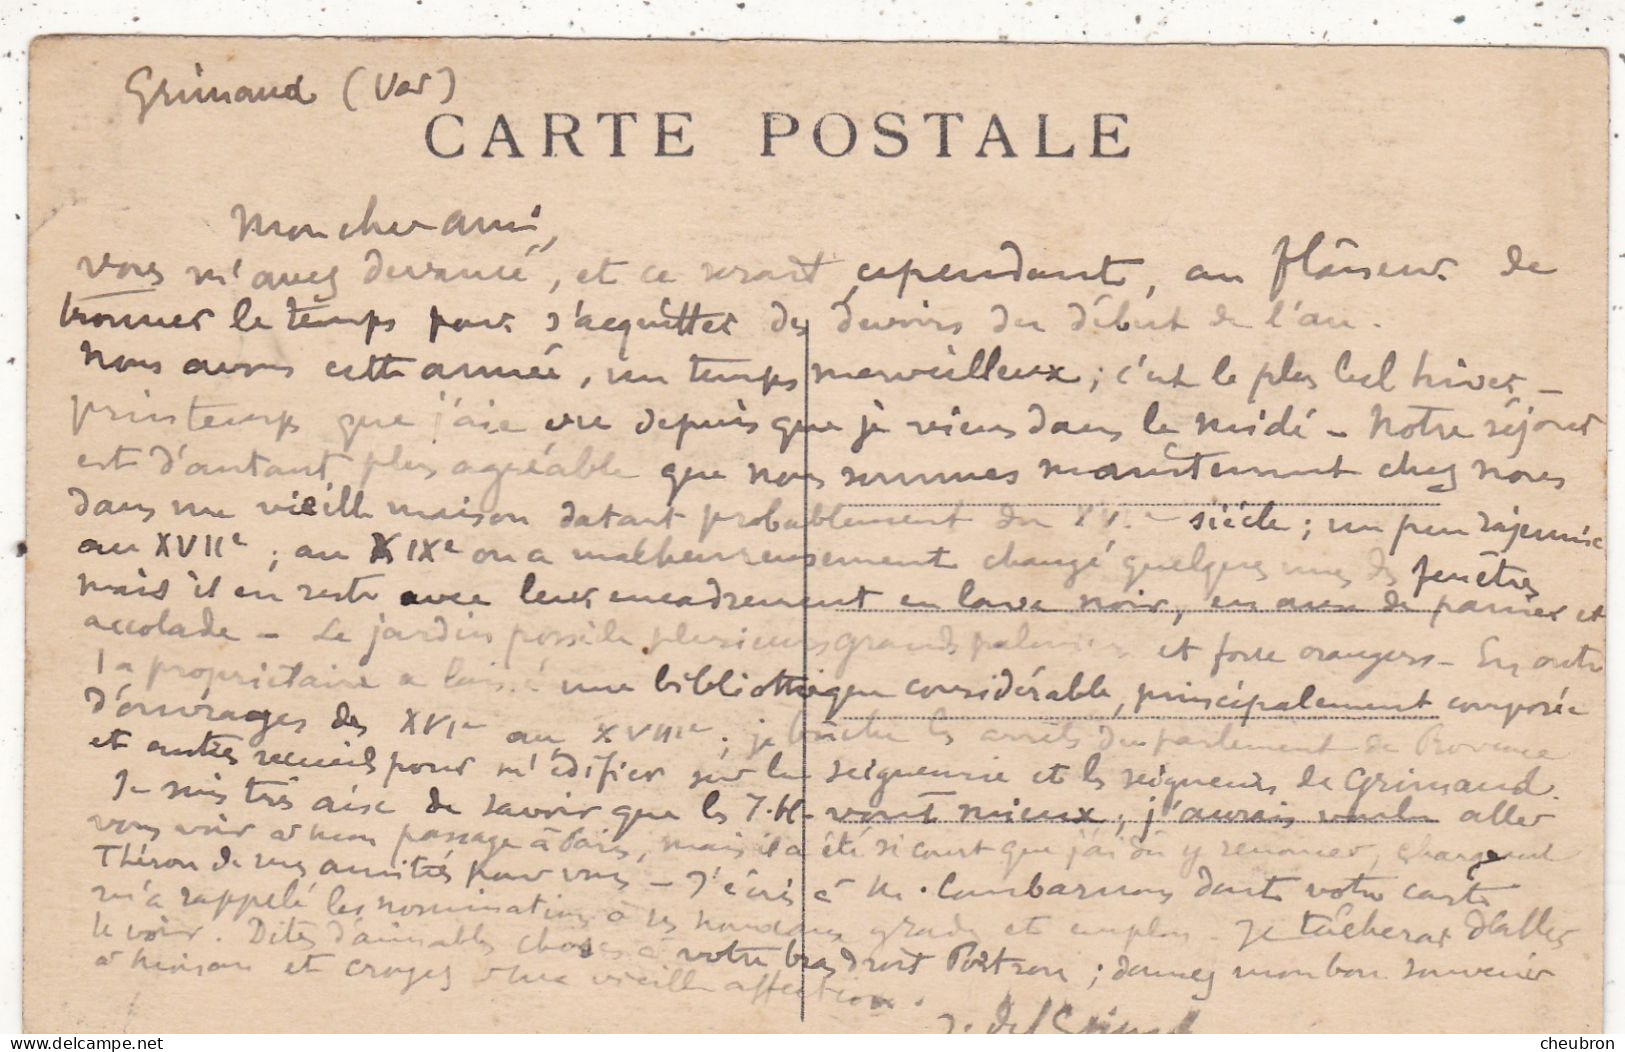 Grimaud (Var)
CARTE POSTALE
Mon cher ami,
vous m'avez devancé, et ce serait, cependant, au flâneur de
trouver le temps pour s'acquitter des devoirs du début de l'an.
Nous avons cette année, un temps merveilleux ; c'est le plus bel hiver –
printemps que j'aie vu depuis que je viens dans le midi – Notre séjour
est d'autant plus agréable que nous sommes maintenant chez nous
dans une vieille maison datant probablement du XVIe siècle ; un peu rajeunie
au XVIIe ; au XIXe on a malheureusement changé quelques unes des fenêtres
mais il en reste avec leur encadrement en lave noir, en anse de panier et
accolade – Le jardin possède plusieurs grands palmiers et force orangers – En outre
la propriétaire a laissé une bibliothèque considérable, principalement composée
d'ouvrages des XVIe au XVIIIe ; je bûche les arrêts du parlement de Provence
et autres recueils pour m'édifier sur la seigneurie et les seigneurs de Grimaud.
Je suis très aise de savoir que les J.H. vont mieux ; j'aurais voulu aller
vous voir à mon passage à Paris, mais il a été si court que j'ai dû y renoncer, chargeant
Théron de mes amitiés pour vous – J'écris à M. Combarnous dont votre carte
m'a rappelé les nominations à ses nouveaux grades et emplois – Je tâcherai d'aller
le voir. Dites d'aimables choses à votre bras droit Poitron ; donnez mon bon souvenir
à et croyez à ma vieille affection.
J. del
cheubron
delcampe.net